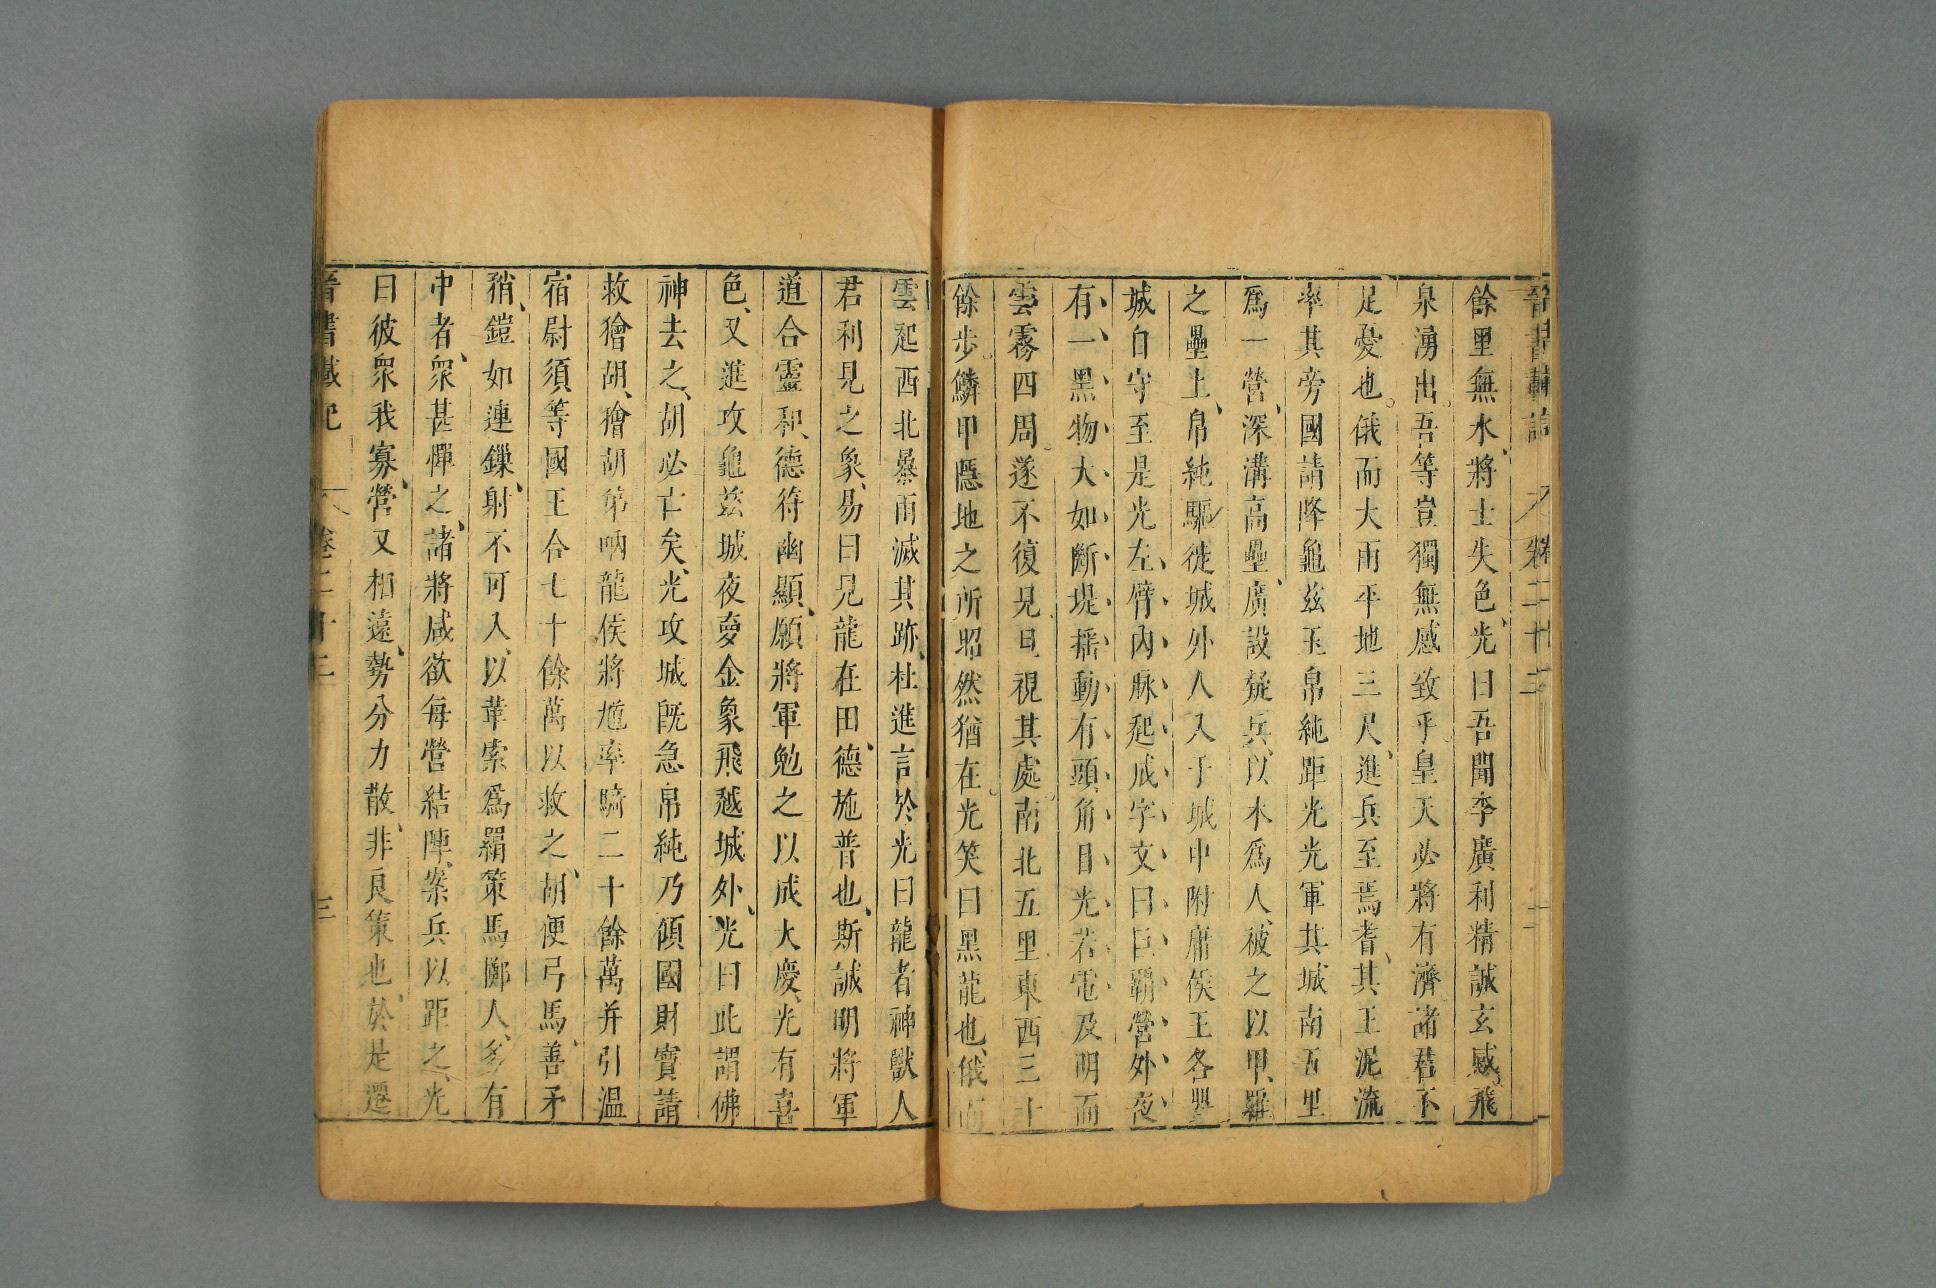 晉書載記 卷二十二
餘里無水將士失色光曰吾聞李廣利精誠玄感飛
泉湧出吾等豈獨無感致乎皇天必將有濟諸君不
足憂也俄而大雨平地三尺進兵至焉耆其王泥流
率其旁國請降龜兹王帛純距光光軍其城南五里
爲一營深溝高壘廣設疑兵以木爲人被之以甲羅
之壘上帛純驅徙城外人入于城中附庸侯王各嬰
城自守至是光左臂內脉起成字文曰巨霸營外夜
有一黑物大如斷堤揺動有頭角目光若電及明而
雲霧四周遂不復見旦視其處南北五里東西三十
餘步鱗甲隱地之所昭然猶在光笑曰黑龍也俄而
雲起西北暴雨滅其跡杜進言於光曰龍者神獸人
君利見之象易曰見龍在田德施普也斯誠明將軍
道合靈和德符幽顯願將軍勉之以成大慶光有喜
色又進攻龜兹城夜夢金象飛越城外光曰此謂佛
神去之胡必亡矣光攻城旣急帛純乃傾國財寶請
救獪胡獪胡弟吶龍侯將馗率騎二十餘萬并引温
宿尉須等國王合七十餘萬以救之胡便弓馬善矛
矟鎧如連鏁射不可入以革索爲羂策馬擲人多有
中者衆甚憚之諸將咸欲每營結陣案兵以距之光
曰彼衆我寡營又相遠勢分力散非良策也於是遷
晉書載記 卷二十二 三